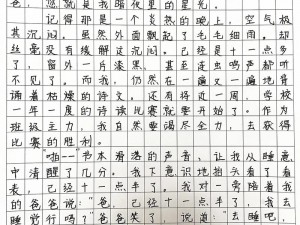 爸，您就是我暗夜里的星光。
记得那是一个炎热的晚上，空气极
其沉闷。虽然外面飘了毛毛细雨，却
丝毫没有缓解这沉闷。已经是十一点多
了，窗外一片漆黑，甚至连虫鸣鸟声都听
不见了。而我，仍然在一遍又一遍地背
诵着枯燥的诗文。还有将近一周，学校
一年一度的诗词比赛就要开始了。作为
班级主力，我自然要竭尽全力，去获得
比赛的胜利。
“啪—”书本滑落的声音，让我从睡意
中清醒了几分。我下意识地抬头看了看
表，已经十一点半了。我对一旁陪着我
的爸爸说：“爸，已经十一点半了，我去
睡觉行吗？”爸爸笑了，说道：“去睡吧，